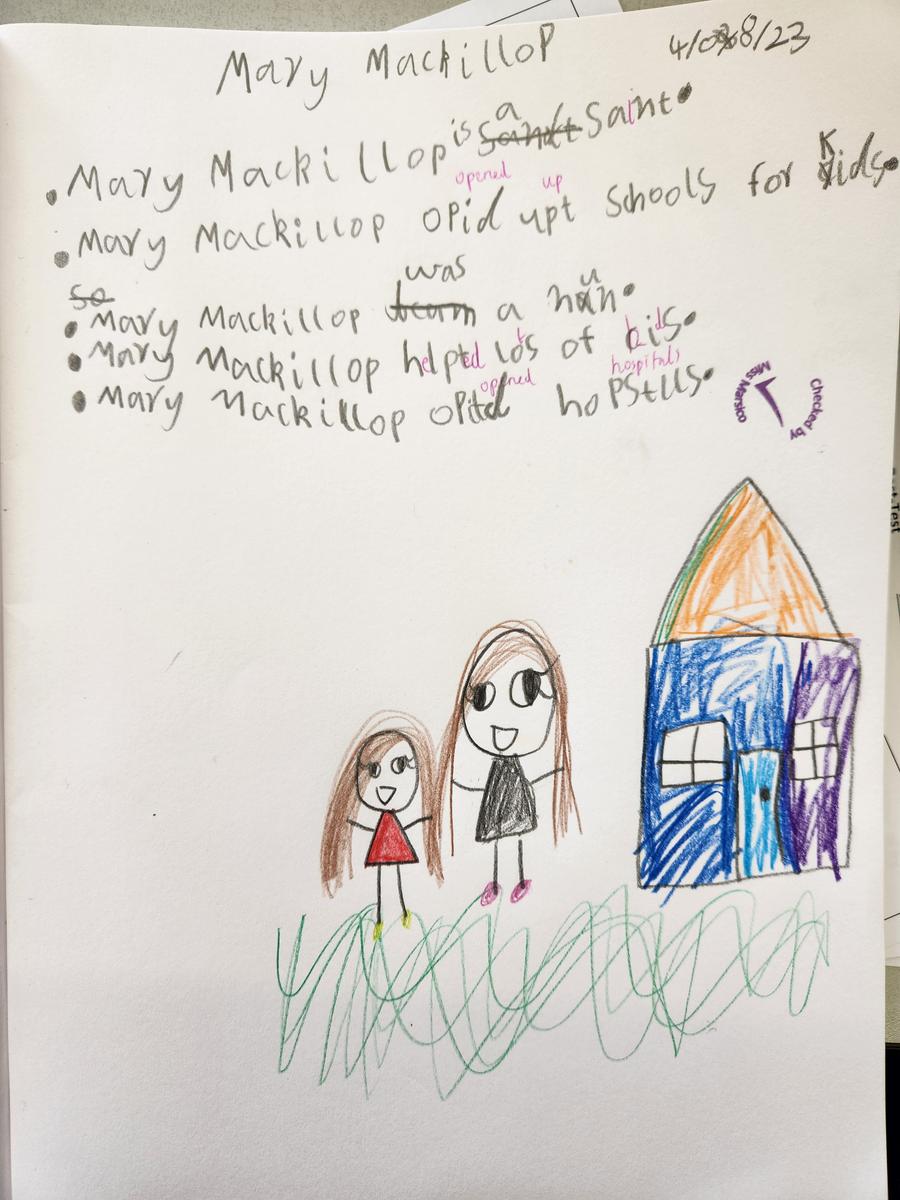 Mary Mackillop 4/08/23
• Mary Mackillop is a Saint.
opened up
• Mary Mackillop opid upt schools for kids.
so
was
• Mary Mackillop a nun.
• Mary Mackillop helpted lots of kids.
opened hospitals
• Mary Mackillop opitd hopstlls.
Checked by
Miss Marsico
Test